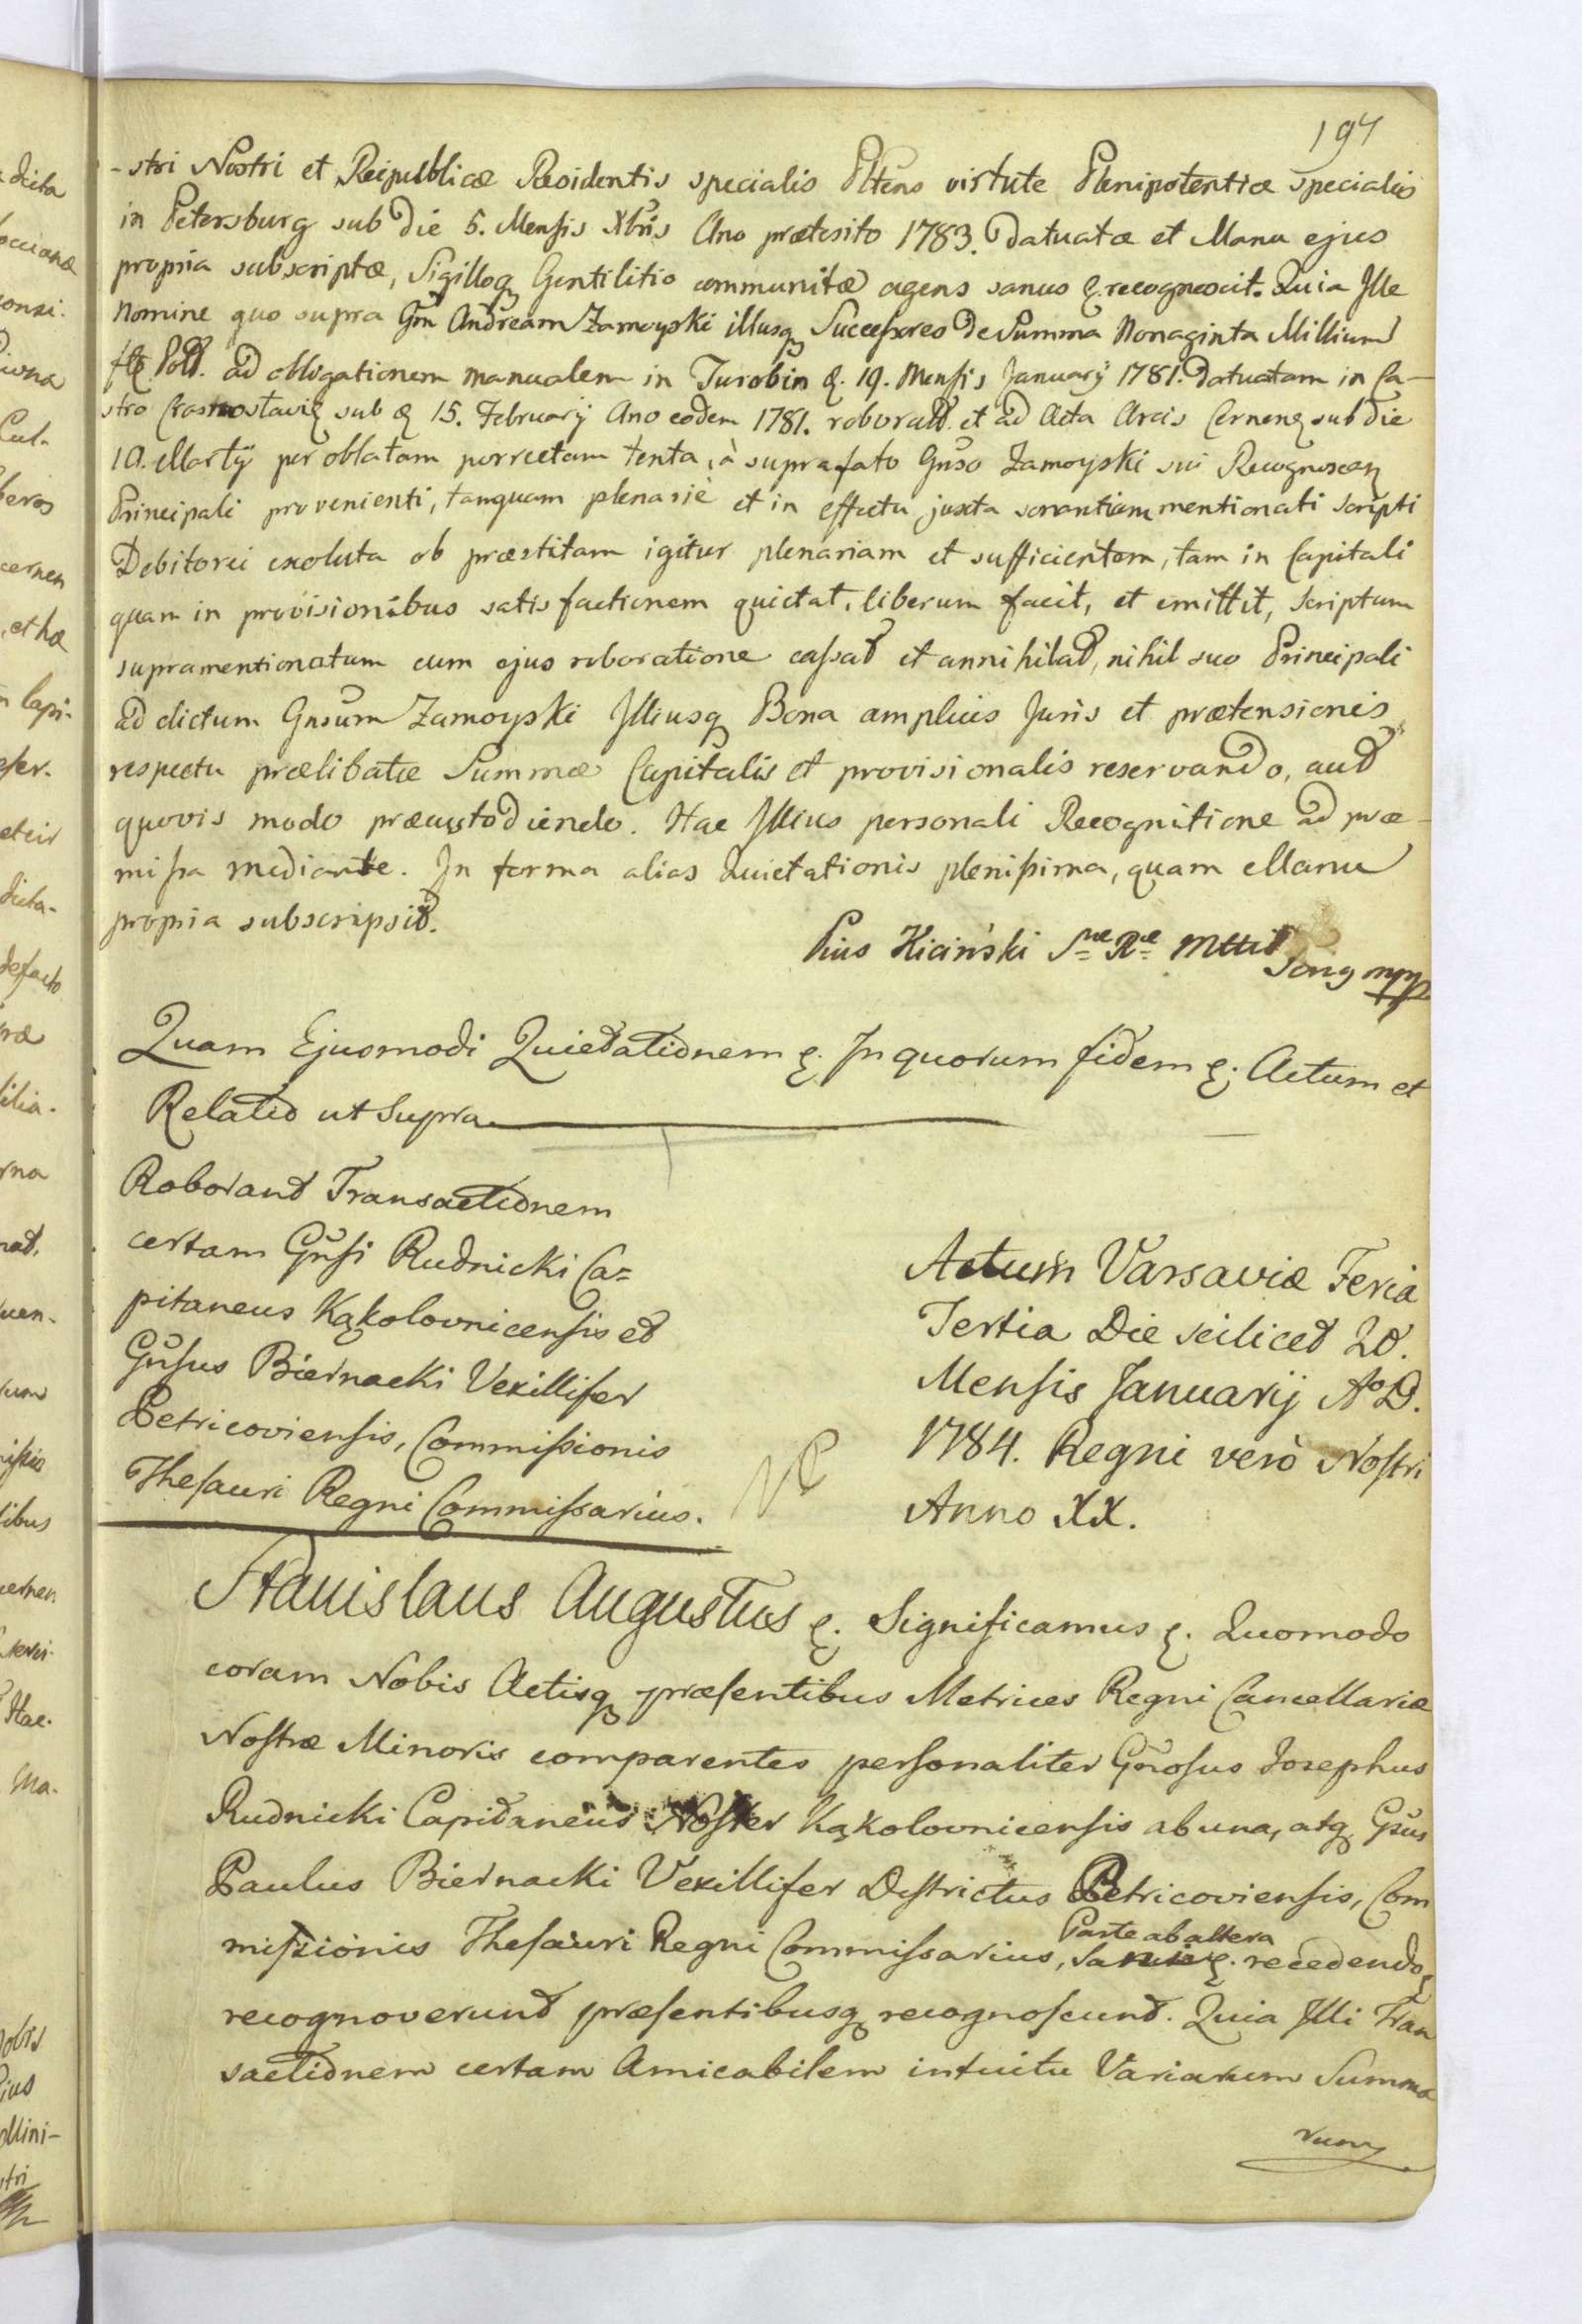 197
-stri Nostri et Reipublicæ Residentis specialis Pltens virtute Plenipotentiæ specialis
in Petersburg sub Die 5. Mensis Xbris Ano præterito 1783. Datuatæ et Manu ejus
propria subscriptæ, Sigilloq Gentilitio communitæ agens sanus &. recognoscit. Quia Ille
Nomine quo supra Gm Andream Zamoyski illiusq Successores De Summa Nonaginta Millium
flg Poll. ad obligationem manualem in Turobin &. 19. Mensis January 1781. Datuatam in Ca-
stro Crasnostavie sub & 15. February Ano eodem 1781. roborat. et ad Acta Arcis Cernens sub die
10. Martÿ per oblatam porrectam tenta, à suprafato Gnso Zamoyski sui Recognoscen
Principali provenienti, tanquam plenariè et in effectu juxta sonantiam mentionati scripti
Debitorei exoluta ob præstitam igitur plenariam et sufficientem, tam in Capitali
quam in provisionibus satisfactionem quietat, liberum facit, et emittit, scriptum
supramentionatum cum ejus roboratione cassat et annihilat, nihil suo Principali
ad dictum Gnsum Zamoyski Illiusq Bona amplius Juris et prætensionis
respectu prælibatæ Summæ Capitalis et provisionalis reservando, aut
quovis modo præcustodiendo. Hac Illius personali Recognitione ad præ-
missa mediante. In forma alias Quietationis plenissima, quam Manu
propria subscripsit.
Pius Kiciński
Quam Ejusmodi Quietationem &. In quorum fidem &. Actum et
Relatio ut Supra.
Roborant Transactionem
certam Gnsi Rudnicki Ca=
pitaneus Kąkolovnicensis et
Gnsus Biernacki Vexillifer
Petricoviensis, Commissionis
Thesauri Regni Commissarius.
Actum Varsaviæ Feria
Tertia Die scilicet 20.
Mensis Januarij Ao D.
1784. Regni verò Nostri
Anno XX.
Stanislaus Augustus &. Significamus &. Quomodo
coram Nobis Actisq præsentibus Metrices Regni Cancellariæ
Nostræ Minoris comparentes personaliter Gnosus Josephus
Rudnicki Capitaneus Noster Kąkolovnicensis ab una, atq Gsus
Paulus Biernacki Vexillifer Districtus Petricoviensis, Com
missionis Thesauri Regni Commissarius, Parte ab altera Sani &. recedendo,
recognoverunt præsentibusq recognoscunt. Quia Illi Tran
sactionem certam Amicabilem intuitu Variarum Summa
rum